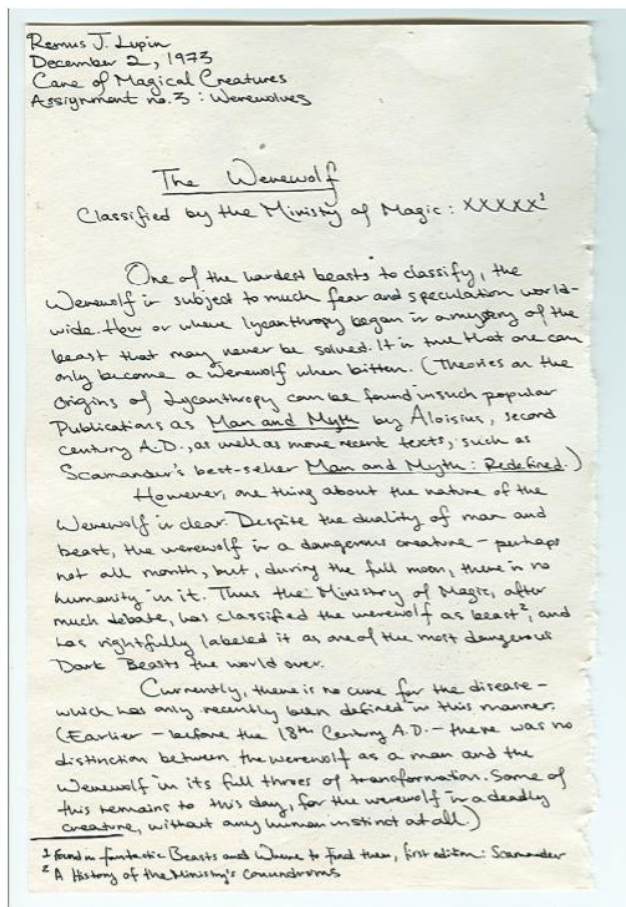 Remus J. Lupin
December 2, 1973
Care of Magical Creatures
Assignment no. 3 : Werewolves
The Werewolf
Classified by the Ministry of Magic : XXXXX¹
One of the hardest beasts to classify, the
Werewolf is subject to much fear and speculation world-
wide. How or where lycanthropy began is a mystery of the
beast that may never be solved. It is true that one can
only become a werewolf when bitten. (Theories on the
Origins of Lycanthropy can be found in such popular
Publications as Man and Myth by Aloisius, second
century A.D., as well as more recent texts, such as
Scamander's best-seller Man and Myth : Redefined.)
However, one thing about the nature of the
Werewolf is clear. Despite the duality of man and
beast, the werewolf is a dangerous creature – perhaps
not all month, but, during the full moon, there is no
humanity in it. Thus the Ministry of Magic, after
much debate, has classified the werewolf as beast², and
has rightfully labeled it as one of the most dangerous
Dark Beasts the world over.
Currently, there is no cure for the disease –
which has only recently been defined in this manner.
(Earlier – before the 18th Century A.D. – there was no
distinction between the werewolf as a man and the
Werewolf in its full throes of transformation. Some of
this remains to this day, for the werewolf is a deadly
creature, without any human instinct at all.)
¹ Found in Fantastic Beasts and Where to Find them, first edition : Scamander
² A History of the Ministry's Conundrums